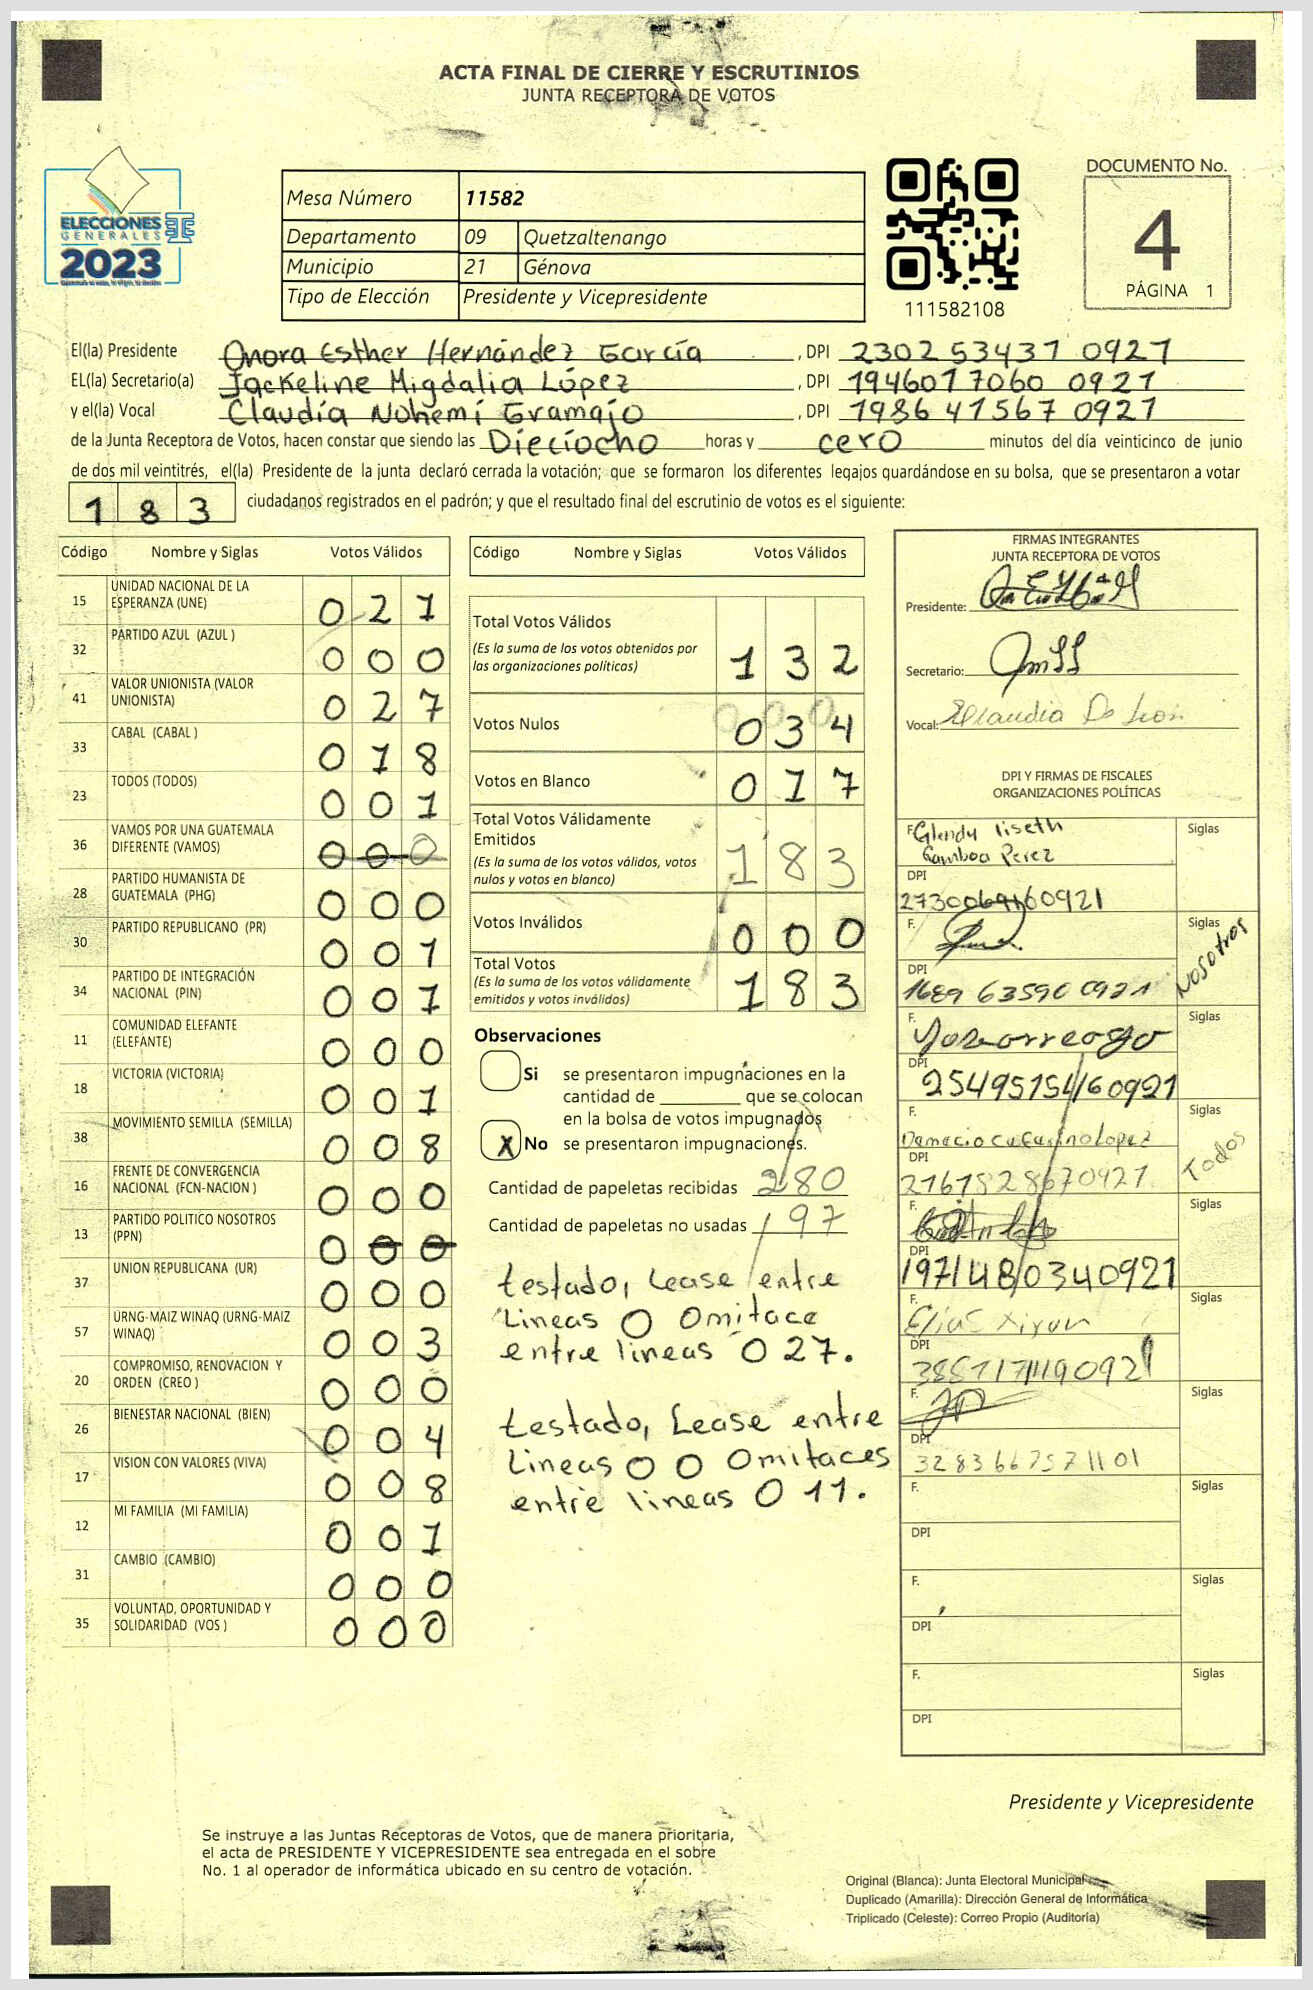 ACTA FINAL DE CIERRE Y ESCRUTINIOS
JUNTA RECEPTORA DE VOTOS
ELECCIONES
GENERALES
2023
Mesa Número 11582
Departamento 09 Quetzaltenango
Municipio 21 Génova
Tipo de Elección Presidente y Vicepresidente
111582108
DOCUMENTO No.
4
PÁGINA 1
El(la) Presidente Onora Esther Hernández García , DPI 2302 53437 0927
EL(la) Secretario(a) Jackeline Migdalia López , DPI 1946017060 0921
y el(la) Vocal Claudia Nohemí Gramajo , DPI 1986 41567 0921
de la Junta Receptora de Votos, hacen constar que siendo las Dieciocho horas y cero minutos del día veinticinco de junio
de dos mil veintitrés, el(la) Presidente de la junta declaró cerrada la votación; que se formaron los diferentes legajos guardándose en su bolsa, que se presentaron a votar
183 ciudadanos registrados en el padrón; y que el resultado final del escrutinio de votos es el siguiente:
Código Nombre y Siglas Votos Válidos
15 UNIDAD NACIONAL DE LA ESPERANZA (UNE) 021
32 PARTIDO AZUL (AZUL ) 000
41 VALOR UNIONISTA (VALOR UNIONISTA) 027
33 CABAL (CABAL ) 018
23 TODOS (TODOS) 001
36 VAMOS POR UNA GUATEMALA DIFERENTE (VAMOS) 000
28 PARTIDO HUMANISTA DE GUATEMALA (PHG) 000
30 PARTIDO REPUBLICANO (PR) 001
34 PARTIDO DE INTEGRACIÓN NACIONAL (PIN) 001
11 COMUNIDAD ELEFANTE (ELEFANTE) 000
18 VICTORIA (VICTORIA) 001
38 MOVIMIENTO SEMILLA (SEMILLA) 008
16 FRENTE DE CONVERGENCIA NACIONAL (FCN-NACION ) 000
13 PARTIDO POLITICO NOSOTROS (PPN) 000
37 UNION REPUBLICANA (UR) 000
57 URNG-MAIZ WINAQ (URNG-MAIZ WINAQ) 003
20 COMPROMISO, RENOVACION Y ORDEN (CREO ) 000
26 BIENESTAR NACIONAL (BIEN) 004
17 VISION CON VALORES (VIVA) 008
12 MI FAMILIA (MI FAMILIA) 001
31 CAMBIO (CAMBIO) 000
35 VOLUNTAD, OPORTUNIDAD Y SOLIDARIDAD (VOS ) 000
Código Nombre y Siglas Votos Válidos
Total Votos Válidos 132
(Es la suma de los votos obtenidos por
las organizaciones políticas)
Votos Nulos 034
Votos en Blanco 017
Total Votos Válidamente
Emitidos 183
(Es la suma de los votos válidos, votos
nulos y votos en blanco)
Votos Inválidos 000
Total Votos 183
(Es la suma de los votos válidamente
emitidos y votos inválidos)
Observaciones
Si se presentaron impugnaciones en la
cantidad de que se colocan
en la bolsa de votos impugnados
X No se presentaron impugnaciones.
Cantidad de papeletas recibidas 280
Cantidad de papeletas no usadas 197
testado, Lease entre
Lineas 0 Omitace
entre lineas 0 27.
testado, Lease entre
Lineas 0 0 Omitaces
entre lineas 0 11.
FIRMAS INTEGRANTES
JUNTA RECEPTORA DE VOTOS
Presidente:
Secretario:
Vocal: Claudia De León
DPI Y FIRMAS DE FISCALES
ORGANIZACIONES POLÍTICAS
F. Glendy liseth Siglas
Gamboa Perez
DPI
F. Siglas Nosotros
DPI
1689 63590 0921
F. Siglas
DPI
F. Siglas Todos
DPI
F. Siglas
DPI
F. Siglas
DPI
F. Siglas
DPI
3283667571101
F. Siglas
DPI
F. Siglas
DPI
F. Siglas
DPI
Presidente y Vicepresidente
Se instruye a las Juntas Receptoras de Votos, que de manera prioritaria,
el acta de PRESIDENTE Y VICEPRESIDENTE sea entregada en el sobre
No. 1 al operador de informática ubicado en su centro de votación.
Original (Blanca): Junta Electoral Municipal
Duplicado (Amarilla): Dirección General de Informática
Triplicado (Celeste): Correo Propio (Auditoría)